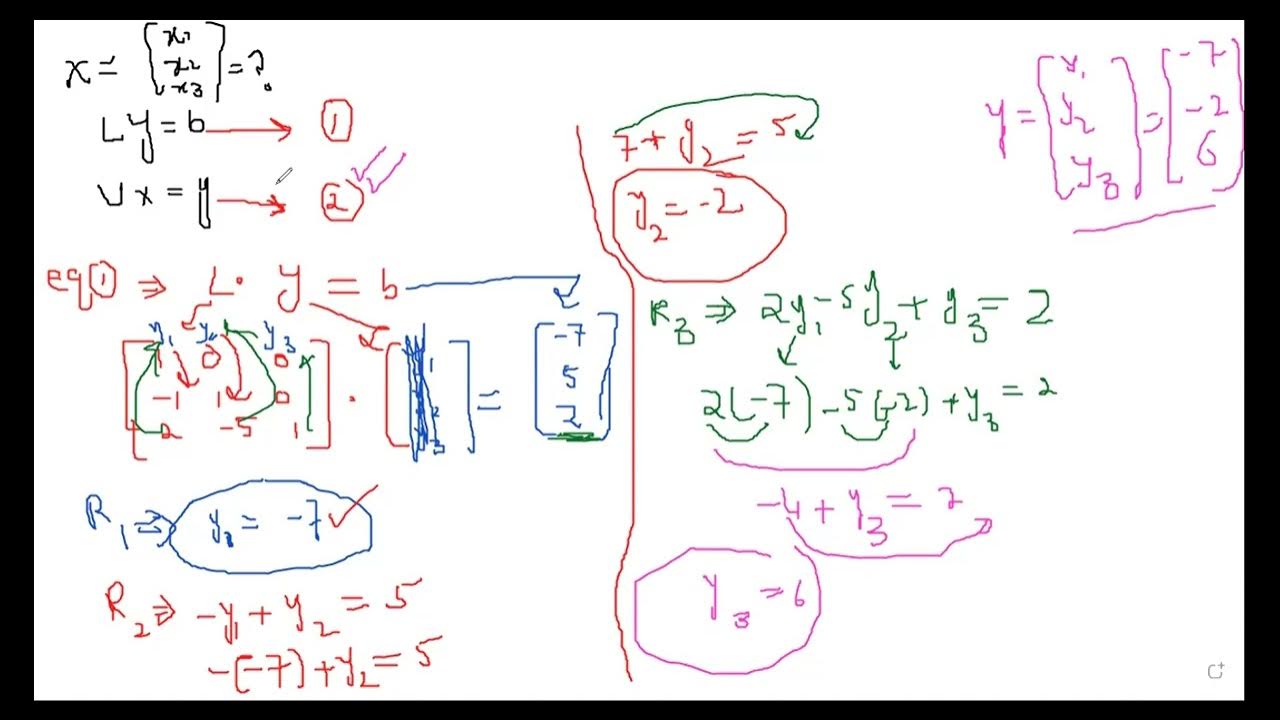 x = [x1 x2 x3] = ?
Ly = b → ①
Ux = y → ②
eq① ⇒ L. y = b
y1 y2 y3
[1 0 0
-1 1 0
2 -5 1] . [ ] = [-7
5
2]
R1 ⇒ y1 = -7 ✓
R2 ⇒ -y1 + y2 = 5
-(-7) + y2 = 5
7 + y2 = 5
y2 = -2
R3 ⇒ 2y1 - 5y2 + y3 = 2
2(-7) - 5(-2) + y3 = 2
-4 + y3 = 2
y3 = 6
y = [y1 y2 y3] = [-7 -2 6]